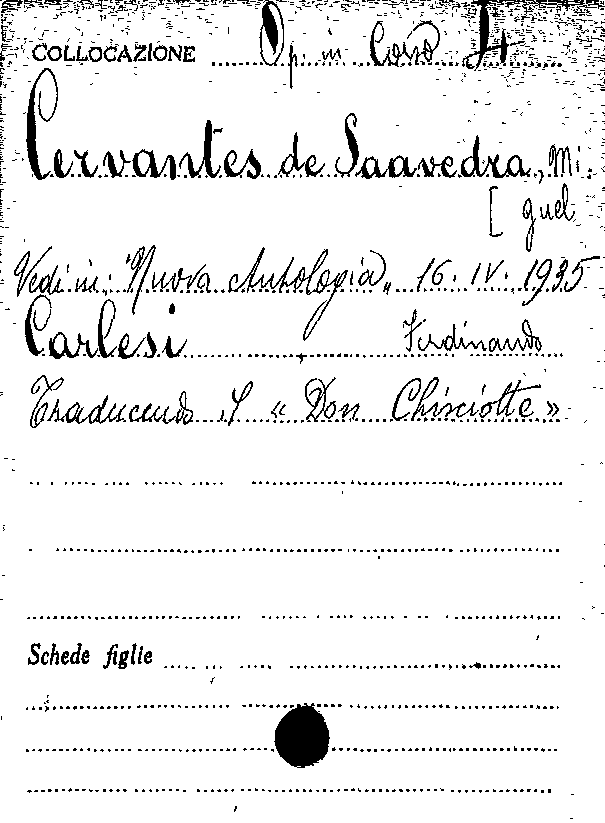 COLLOCAZIONE Op. in Corso 4
Cervantes de Saavedra, Mi:
[ guel
Vedi in: "Nuova Antologia„ 16. IV. 1935
Carlesi Ferdinando
Traducendo il « Don Chisciotte »
Schede figlie